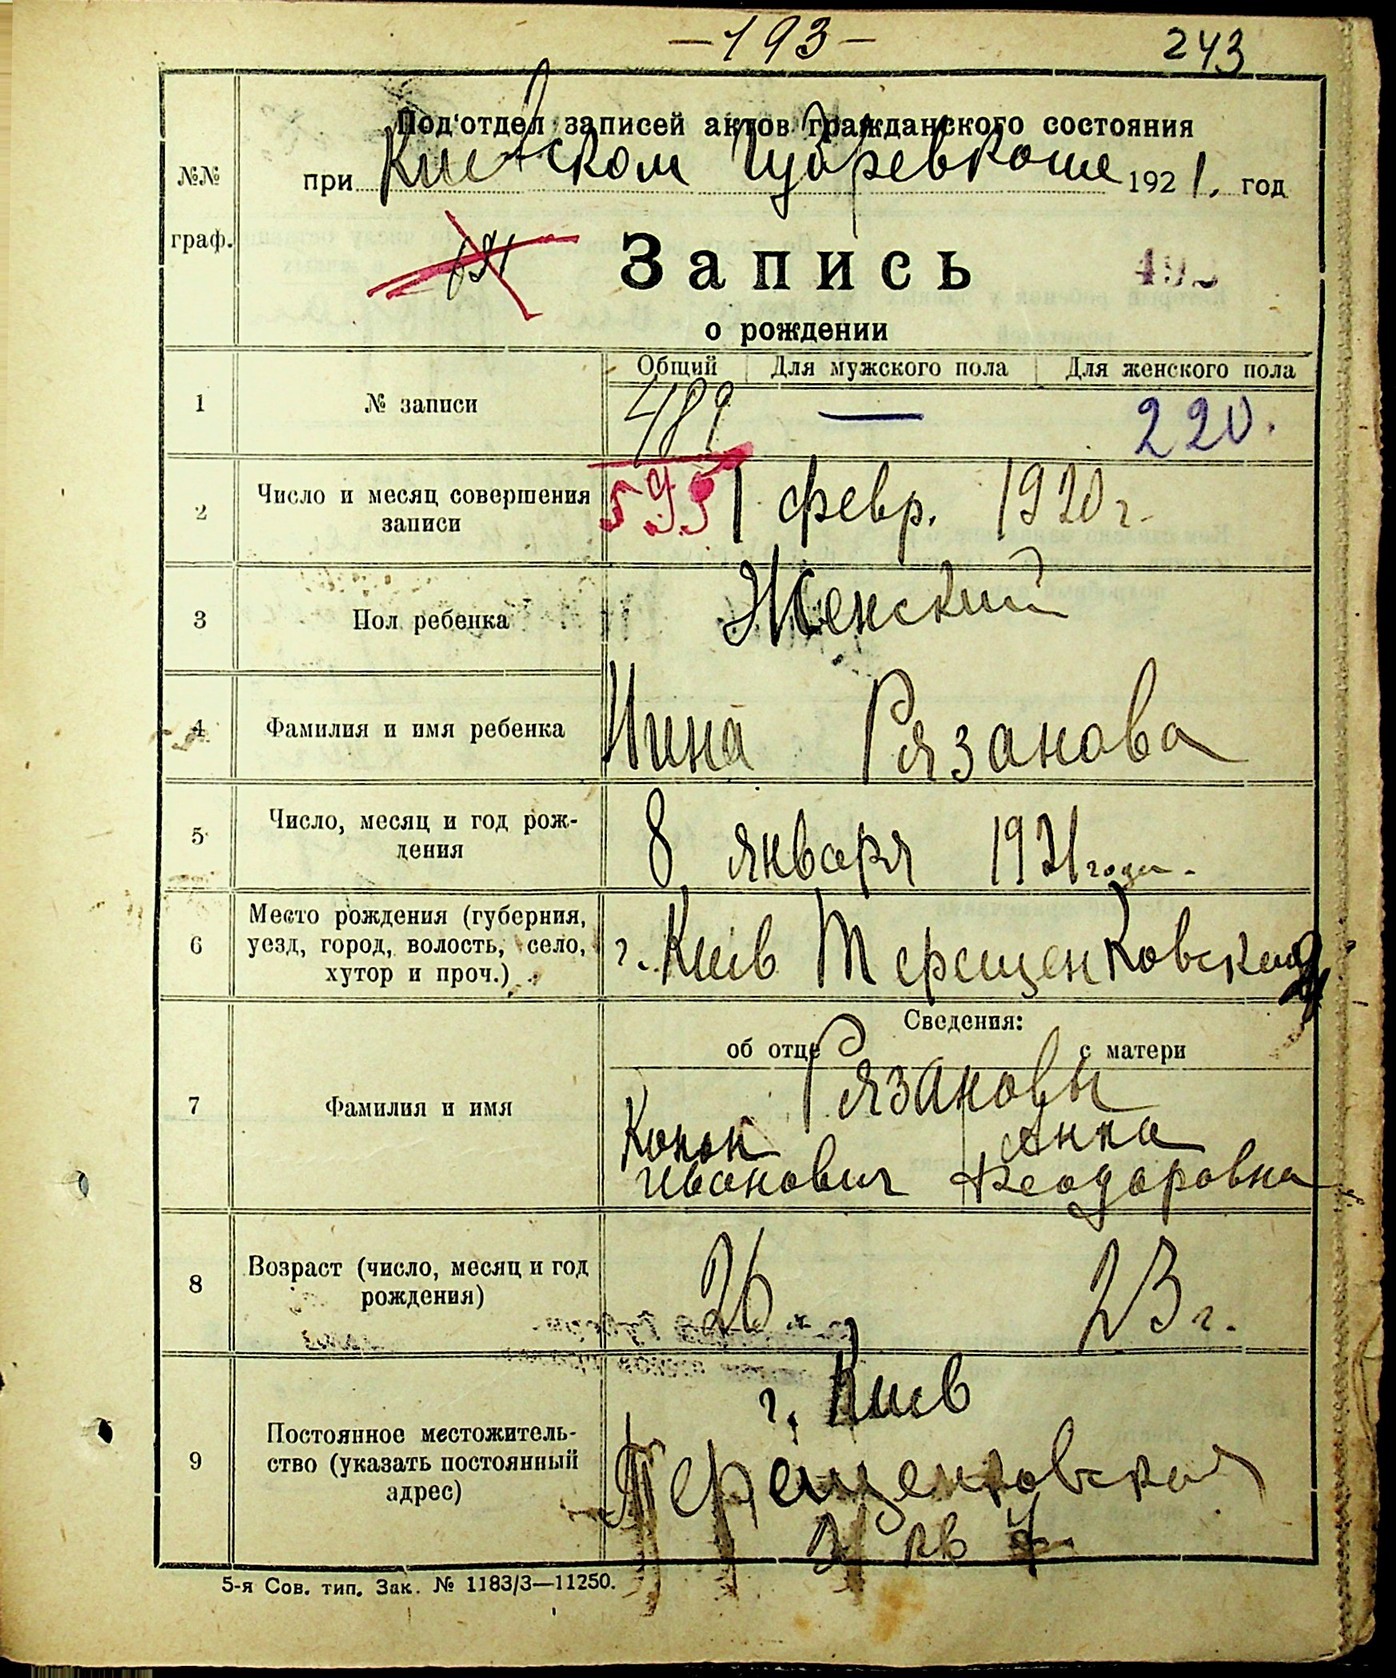 —193—
243
Под'отдел записей актов гражданского состояния
№№ граф.
при Киевском Губревкоме 1921. год
691
Запись
о рождении
Общий Для мужского пола Для женского пола
1 № записи 489 — 220.
595
2 Число и месяц совершения записи 1 февр. 1920 г.
3 Пол ребенка Женский
4 Фамилия и имя ребенка Нина Рязанова
5 Число, месяц и год рож-
дения 8 января 1921 года.
6 Место рождения (губерния,
уезд, город, волость, село,
хутор и проч.) г. Киів Терещенковская
Сведения:
об отце о матери
7 Фамилия и имя Рязановы
Конон Анна
Иванович Феодоровна
8 Возраст (число, месяц и год
рождения) 26 23 г.
9 Постоянное местожитель-
ство (указать постоянный
адрес) г. Киев
Терещенковская
кв
5-я Сов. тип. Зак. № 1183/3—11250.